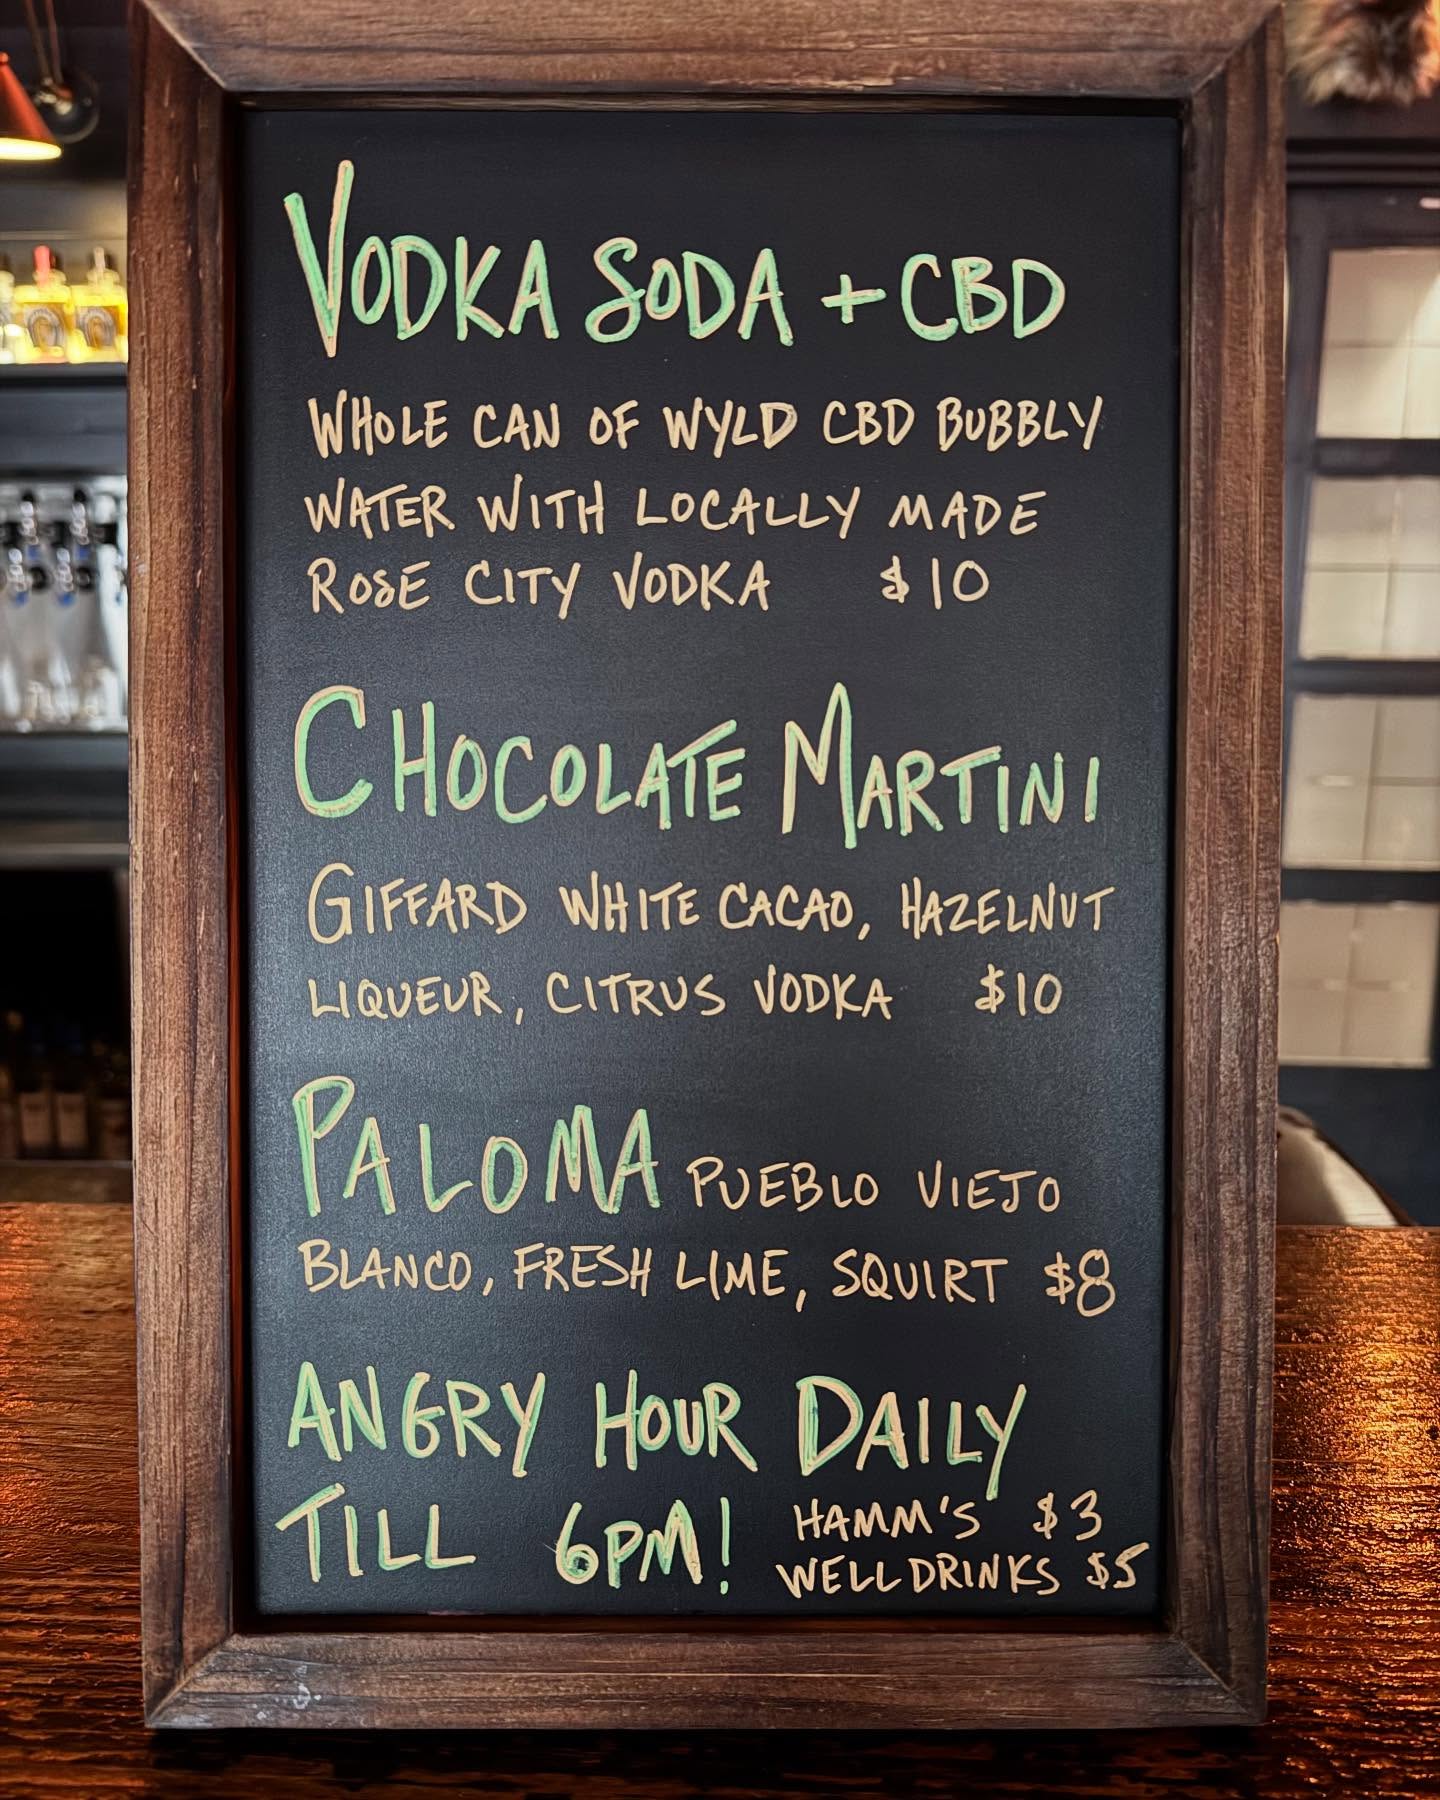 VODKA SODA + CBD
WHOLE CAN OF WYLD CBD BUBBLY
WATER WITH LOCALLY MADE
ROSE CITY VODKA $10
CHOCOLATE MARTINI
GIFFARD WHITE CACAO, HAZELNUT
LIQUEUR, CITRUS VODKA $10
PALOMA PUEBLO VIEJO
BLANCO, FRESH LIME, SQUIRT $8
ANGRY HOUR DAILY
TILL 6PM! HAMM'S $3
WELL DRINKS $5